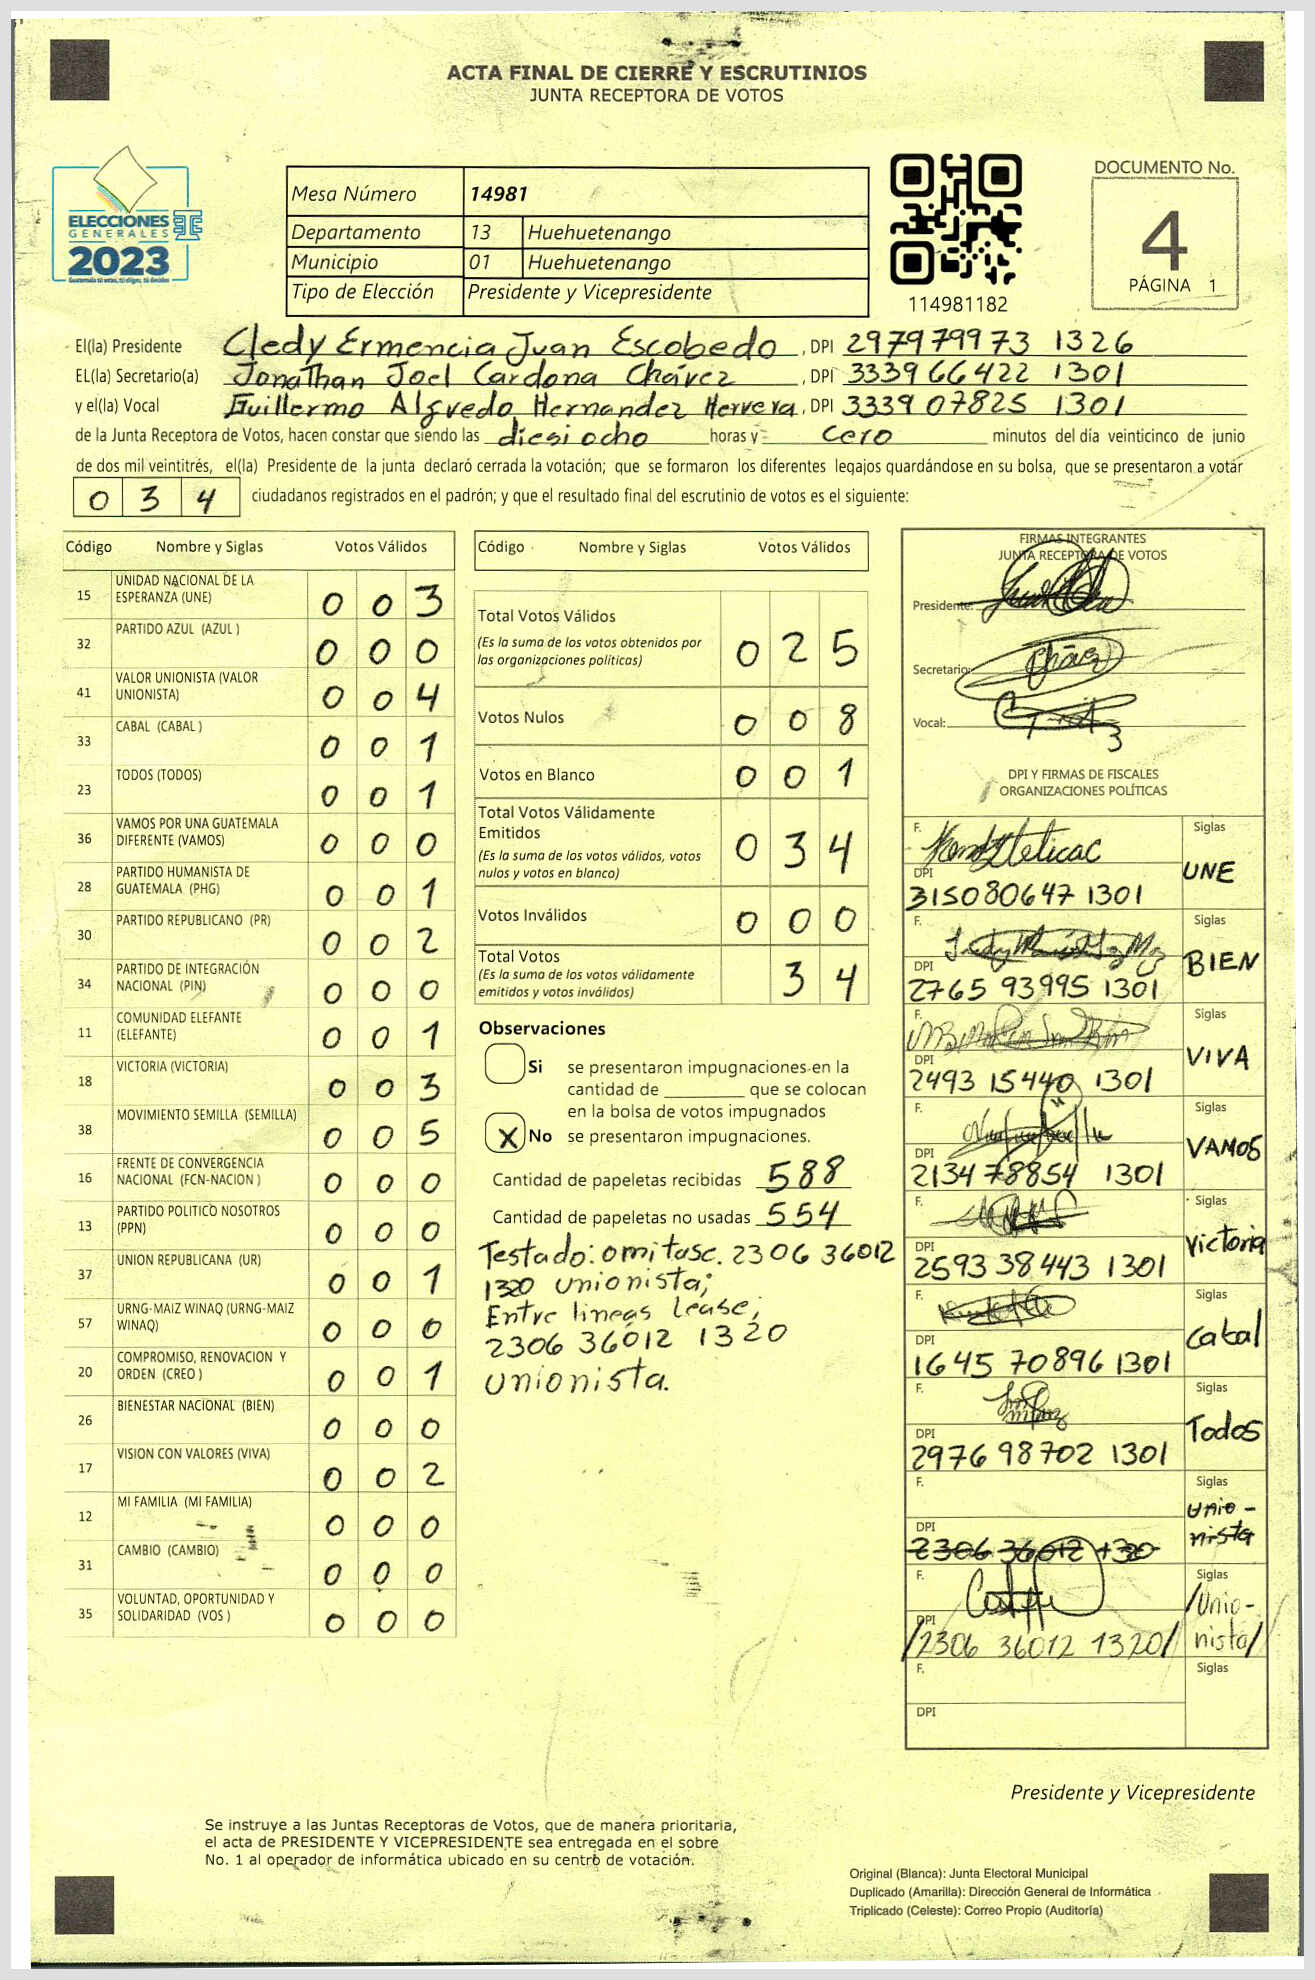 ACTA FINAL DE CIERRE Y ESCRUTINIOS
JUNTA RECEPTORA DE VOTOS
ELECCIONES
GENERALES
2023
Guatemala tú votas, tú eliges, tú decides
Mesa Número 14981
Departamento 13 Huehuetenango
Municipio 01 Huehuetenango
Tipo de Elección Presidente y Vicepresidente
114981182
DOCUMENTO No.
4
PÁGINA 1
El(la) Presidente Cledy Ermencia Juan Escobedo , DPI 297979973 1326
EL(la) Secretario(a) Jonathan Joel Cardona Chávez , DPI 333966422 1301
y el(la) Vocal Guillermo Alfredo Hernandez Herrera , DPI 333907825 1301
de la Junta Receptora de Votos, hacen constar que siendo las diesiocho horas y cero minutos del día veinticinco de junio
de dos mil veintitrés, el(la) Presidente de la junta declaró cerrada la votación; que se formaron los diferentes legajos guardándose en su bolsa, que se presentaron a votar
0 3 4 ciudadanos registrados en el padrón; y que el resultado final del escrutinio de votos es el siguiente:
Código Nombre y Siglas Votos Válidos
15 UNIDAD NACIONAL DE LA ESPERANZA (UNE) 0 0 3
32 PARTIDO AZUL (AZUL ) 0 0 0
41 VALOR UNIONISTA (VALOR UNIONISTA) 0 0 4
33 CABAL (CABAL ) 0 0 1
23 TODOS (TODOS) 0 0 1
36 VAMOS POR UNA GUATEMALA DIFERENTE (VAMOS) 0 0 0
28 PARTIDO HUMANISTA DE GUATEMALA (PHG) 0 0 1
30 PARTIDO REPUBLICANO (PR) 0 0 2
34 PARTIDO DE INTEGRACIÓN NACIONAL (PIN) 0 0 0
11 COMUNIDAD ELEFANTE (ELEFANTE) 0 0 1
18 VICTORIA (VICTORIA) 0 0 3
38 MOVIMIENTO SEMILLA (SEMILLA) 0 0 5
16 FRENTE DE CONVERGENCIA NACIONAL (FCN-NACION ) 0 0 0
13 PARTIDO POLITICO NOSOTROS (PPN) 0 0 0
37 UNION REPUBLICANA (UR) 0 0 1
57 URNG-MAIZ WINAQ (URNG-MAIZ WINAQ) 0 0 0
20 COMPROMISO, RENOVACION Y ORDEN (CREO ) 0 0 1
26 BIENESTAR NACIONAL (BIEN) 0 0 0
17 VISION CON VALORES (VIVA) 0 0 2
12 MI FAMILIA (MI FAMILIA) 0 0 0
31 CAMBIO (CAMBIO) 0 0 0
35 VOLUNTAD, OPORTUNIDAD Y SOLIDARIDAD (VOS ) 0 0 0
Código Nombre y Siglas Votos Válidos
Total Votos Válidos
(Es la suma de los votos obtenidos por
las organizaciones políticas) 0 2 5
Votos Nulos 0 0 8
Votos en Blanco 0 0 1
Total Votos Válidamente
Emitidos
(Es la suma de los votos válidos, votos
nulos y votos en blanco) 0 3 4
Votos Inválidos 0 0 0
Total Votos
(Es la suma de los votos válidamente
emitidos y votos inválidos) 3 4
Observaciones
Si se presentaron impugnaciones en la
cantidad de ________ que se colocan
en la bolsa de votos impugnados
X No se presentaron impugnaciones.
Cantidad de papeletas recibidas 588
Cantidad de papeletas no usadas 554
Testado: omitase. 2306 36012
1320 unionista;
Entre lineas lease,
2306 36012 1320
unionista.
FIRMAS INTEGRANTES
JUNTA RECEPTORA DE VOTOS
Presidente:
Secretario:
Vocal:
DPI Y FIRMAS DE FISCALES
ORGANIZACIONES POLÍTICAS
F. Siglas
DPI UNE
315080647 1301
F. Siglas
DPI BIEN
2765 93995 1301
F. Siglas
DPI VIVA
2493 15440 1301
F. Siglas
DPI VAMOS
2134 78854 1301
F. Siglas
DPI Victoria
2593 38443 1301
F. Siglas
DPI Cabal
1645 70896 1301
F. Siglas
DPI Todos
2976 98702 1301
F. Siglas
DPI Unio-
nista
2306 36012 1320
F. Siglas
DPI /Unio-
/2306 36012 1320/ nista/
F. Siglas
DPI
Presidente y Vicepresidente
Se instruye a las Juntas Receptoras de Votos, que de manera prioritaria,
el acta de PRESIDENTE Y VICEPRESIDENTE sea entregada en el sobre
No. 1 al operador de informática ubicado en su centro de votación.
Original (Blanca): Junta Electoral Municipal
Duplicado (Amarilla): Dirección General de Informática
Triplicado (Celeste): Correo Propio (Auditoría)